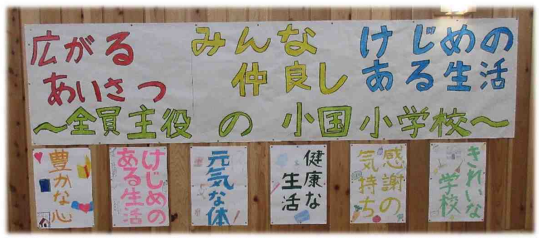 広がる
あいさつ
みんな
仲良し
けじめの
ある生活
〜全員主役の小国小学校〜
豊かな心
けじめの
ある生活
元気な体
健康な
生活
感謝の
気持ち
きれいな
学校